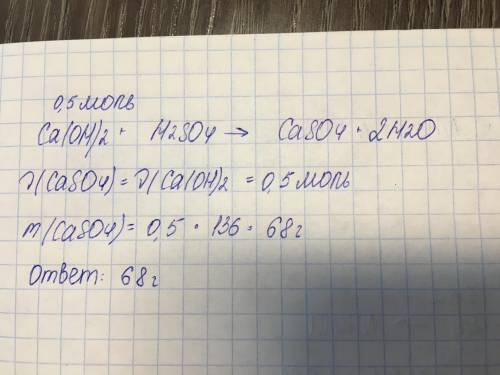 0,5 моль
Ca(OH)2 + H2SO4 → CaSO4 + 2H2O
ν(CaSO4) = ν(Ca(OH)2 = 0,5 моль
m(CaSO4) = 0,5 • 136 = 68 г
Ответ: 68 г